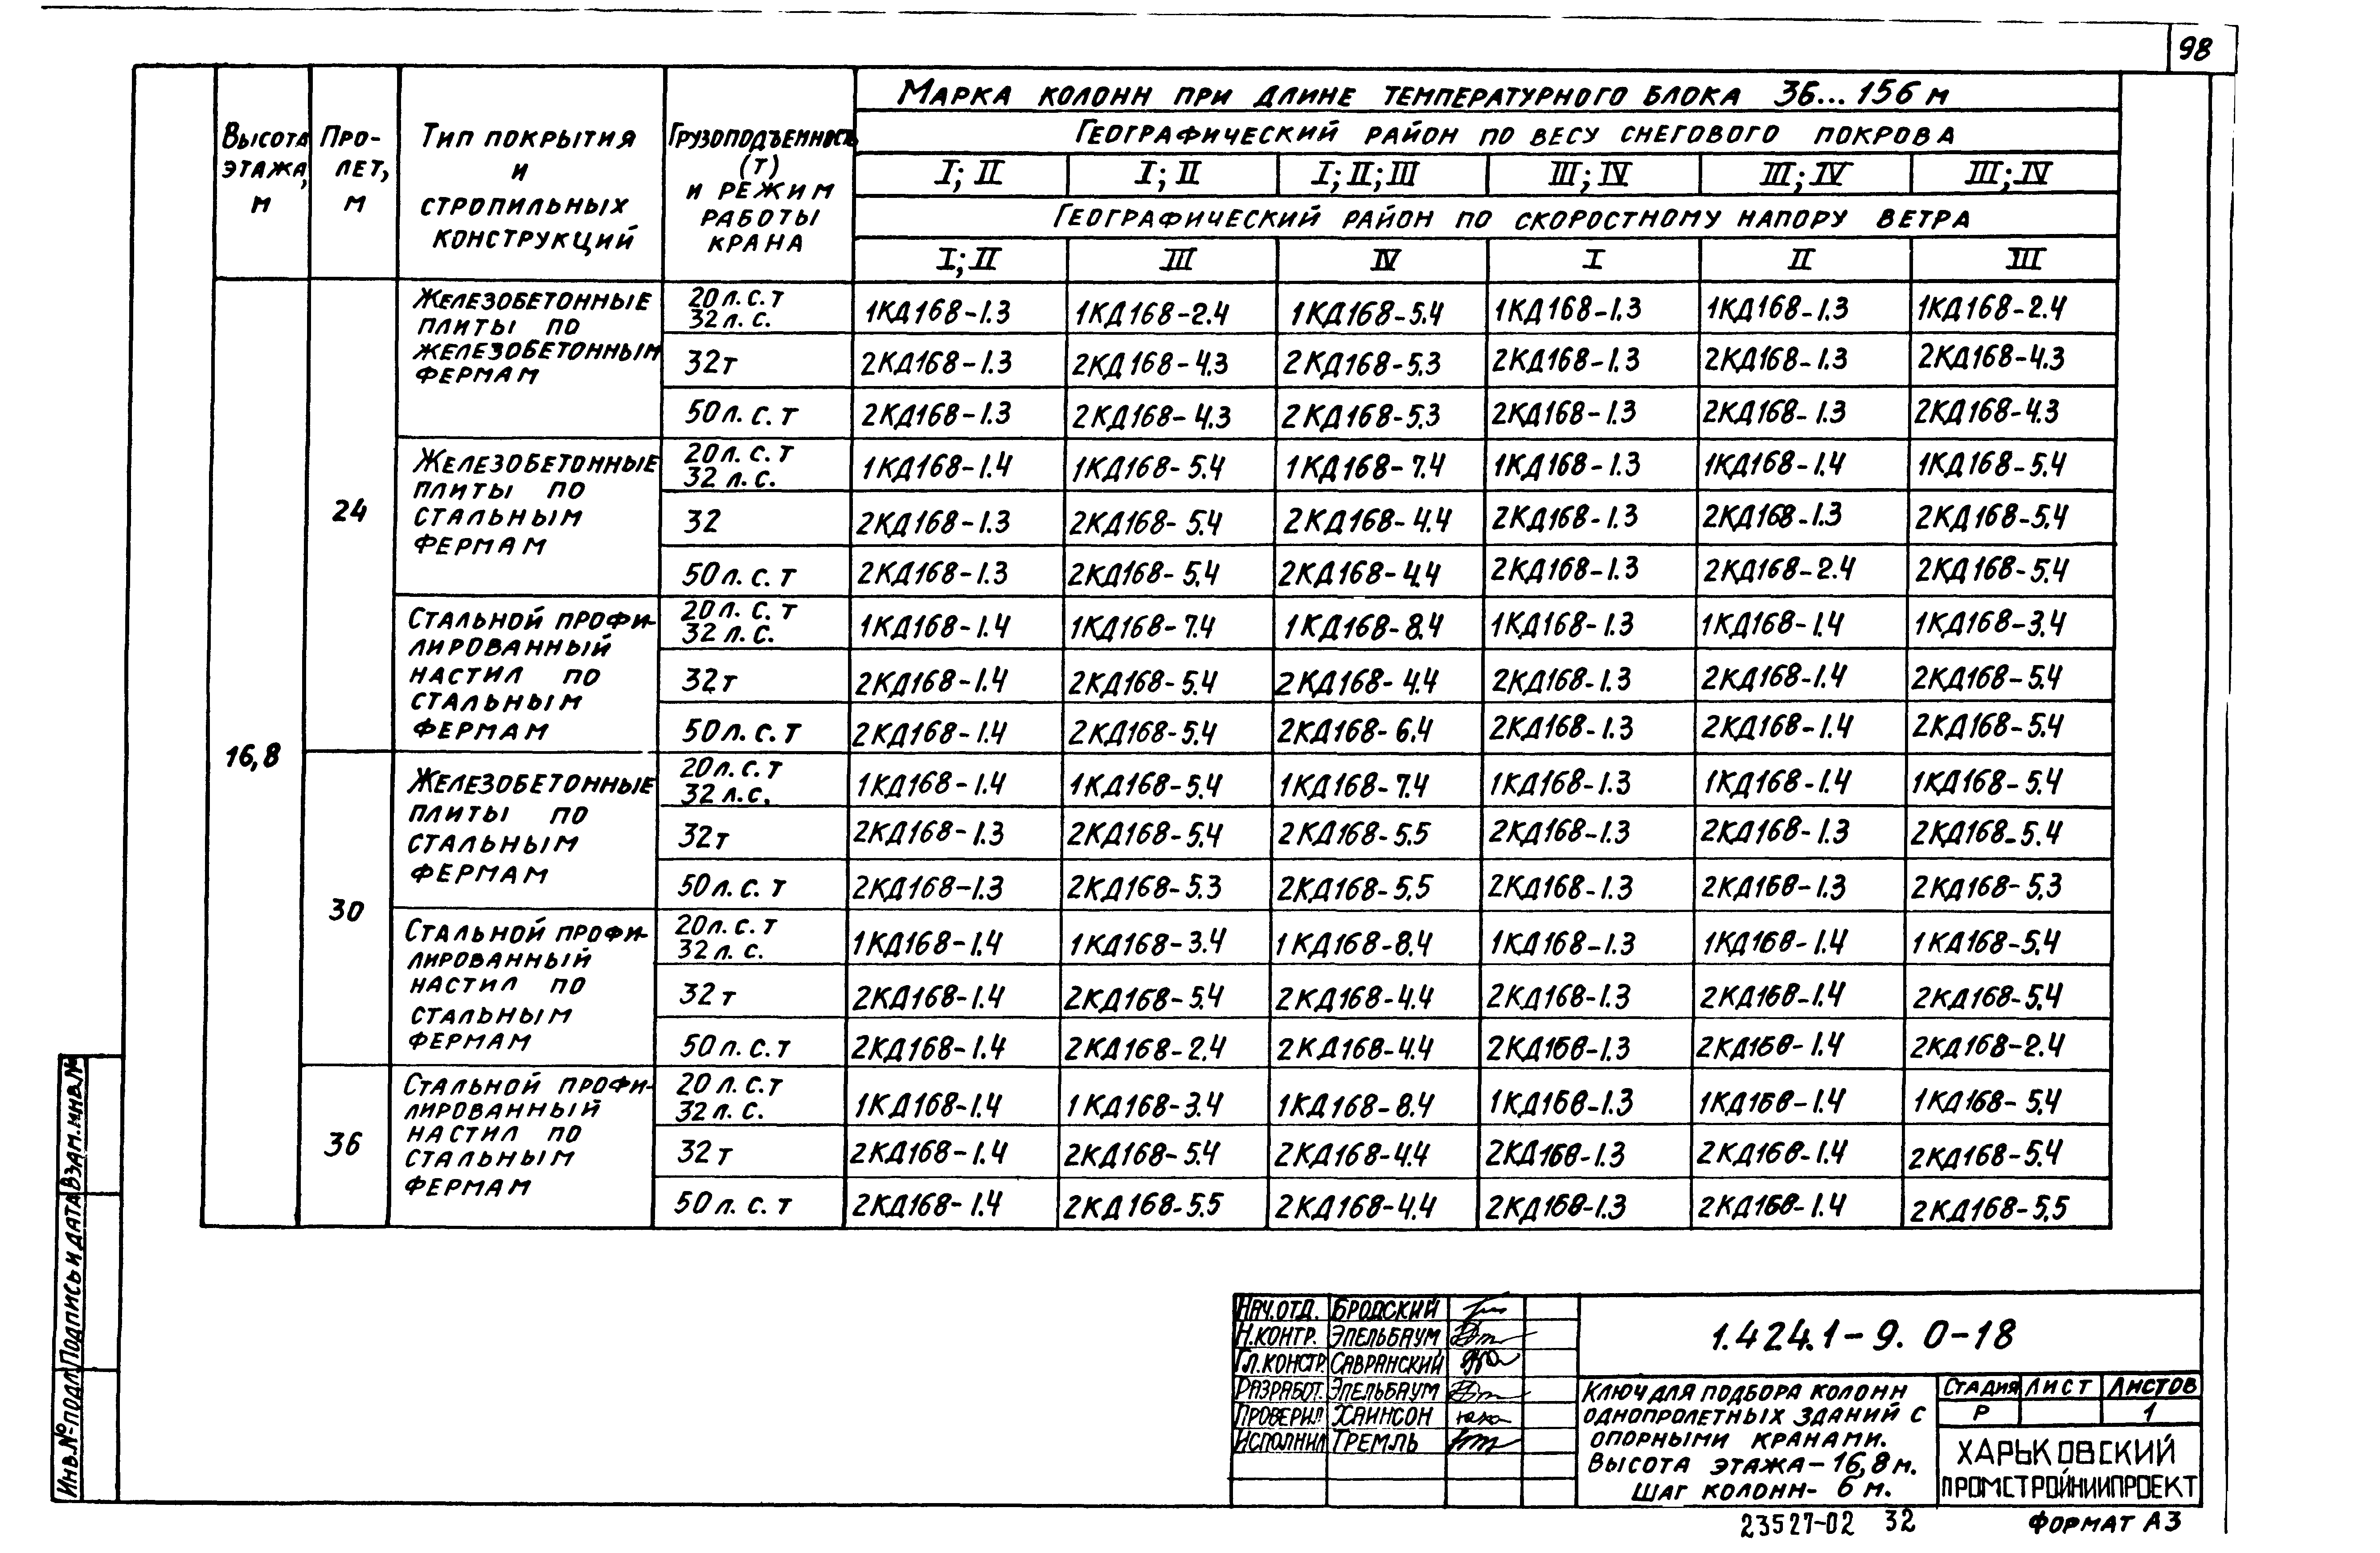 98
Марка колонн при длине температурного блока 36...156 м
Высота этажа, м
Пролет, м
Тип покрытия и стропильных конструкций
Грузоподъемность (т) и режим работы крана
Географический район по весу снегового покрова
I; II I; II I; II; III III; IV III; IV III; IV
Географический район по скоростному напору ветра
I; II III IV I II III
16,8
24
Железобетонные плиты по железобетонным фермам
20 л. с. т 32 л. с. 1КД168-1.3 1КД168-2.4 1КД168-5.4 1КД168-1.3 1КД168-1.3 1КД168-2.4
32т 2КД168-1.3 2КД168-4.3 2КД168-5.3 2КД168-1.3 2КД168-1.3 2КД168-4.3
50 л. с. т 2КД168-1.3 2КД168-4.3 2КД168-5.3 2КД168-1.3 2КД168-1.3 2КД168-4.3
Железобетонные плиты по стальным фермам
20 л. с. т 32 л. с. 1КД168-1.4 1КД168-5.4 1КД168-7.4 1КД168-1.3 1КД168-1.4 1КД168-5.4
32 2КД168-1.3 2КД168-5.4 2КД168-4.4 2КД168-1.3 2КД168-1.3 2КД168-5.4
50 л. с. т 2КД168-1.3 2КД168-5.4 2КД168-4.4 2КД168-1.3 2КД168-2.4 2КД168-5.4
Стальной профилированный настил по стальным фермам
20 л. с. т 32 л. с. 1КД168-1.4 1КД168-7.4 1КД168-8.4 1КД168-1.3 1КД168-1.4 1КД168-3.4
32т 2КД168-1.4 2КД168-5.4 2КД168-4.4 2КД168-1.3 2КД168-1.4 2КД168-5.4
50 л. с. т 2КД168-1.4 2КД168-5.4 2КД168-6.4 2КД168-1.3 2КД168-1.4 2КД168-5.4
30
Железобетонные плиты по стальным фермам
20 л. с. т 32 л. с. 1КД168-1.4 1КД168-5.4 1КД168-7.4 1КД168-1.3 1КД168-1.4 1КД168-5.4
32т 2КД168-1.3 2КД168-5.4 2КД168-5.5 2КД168-1.3 2КД168-1.3 2КД168-5.4
50 л. с. т 2КД168-1.3 2КД168-5.3 2КД168-5.5 2КД168-1.3 2КД168-1.3 2КД168-5.3
Стальной профилированный настил по стальным фермам
20 л. с. т 32 л. с. 1КД168-1.4 1КД168-3.4 1КД168-8.4 1КД168-1.3 1КД168-1.4 1КД168-5.4
32 т 2КД168-1.4 2КД168-5.4 2КД168-4.4 2КД168-1.3 2КД168-1.4 2КД168-5.4
50 л. с. т 2КД168-1.4 2КД168-2.4 2КД168-4.4 2КД168-1.3 2КД168-1.4 2КД168-2.4
36
Стальной профилированный настил по стальным фермам
20 л. с. т 32 л. с. 1КД168-1.4 1КД168-3.4 1КД168-8.4 1КД168-1.3 1КД168-1.4 1КД168-5.4
32 т 2КД168-1.4 2КД168-5.4 2КД168-4.4 2КД168-1.3 2КД168-1.4 2КД168-5.4
50 л. с. т 2КД168-1.4 2КД168-5.5 2КД168-4.4 2КД168-1.3 2КД168-1.4 2КД168-5.5
Инв.№ подл. Подпись и дата Взам.инв.№
Нач.отд. Бродский
Н.контр. Эпельбаум
Гл.констр. Савранский
Разработ. Эпельбаум
Проверил Хаинсон
Исполнил Гремль
1.424.1-9. 0-18
Ключ для подбора колонн
однопролетных зданий с
опорными кранами.
Высота этажа-16,8 м.
Шаг колонн- 6 м.
Стадия Лист Листов
Р 1
Харьковский
Промстройниипроект
23527-02 32
Формат А3